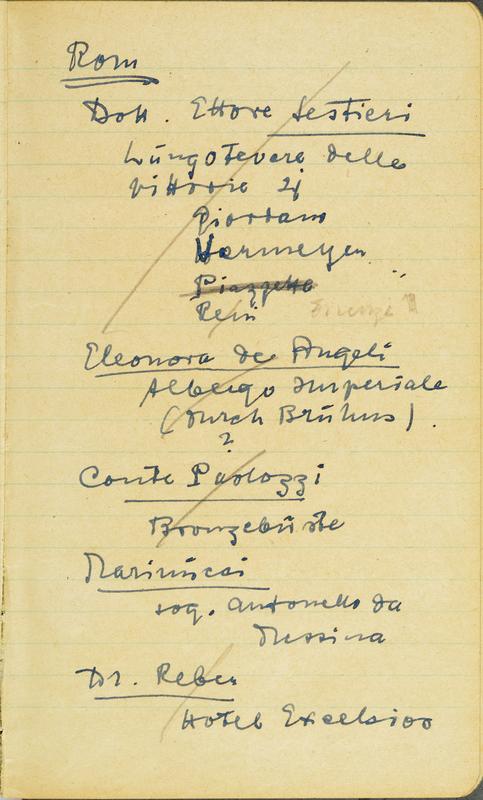 Rom
Dott. Ettore Sestieri
Lungotevere delle
Vittorie 2
Giordano
Harmeyer
Piazzetta
Reni
Eleonora de Angeli
Albergo Imperiale
(durch Brühns).
?
Conte Paolozzi
Bronzebüste
Marinucci
sog. Antonello da
Messina
Dr. Reber
Hotel Excelsior